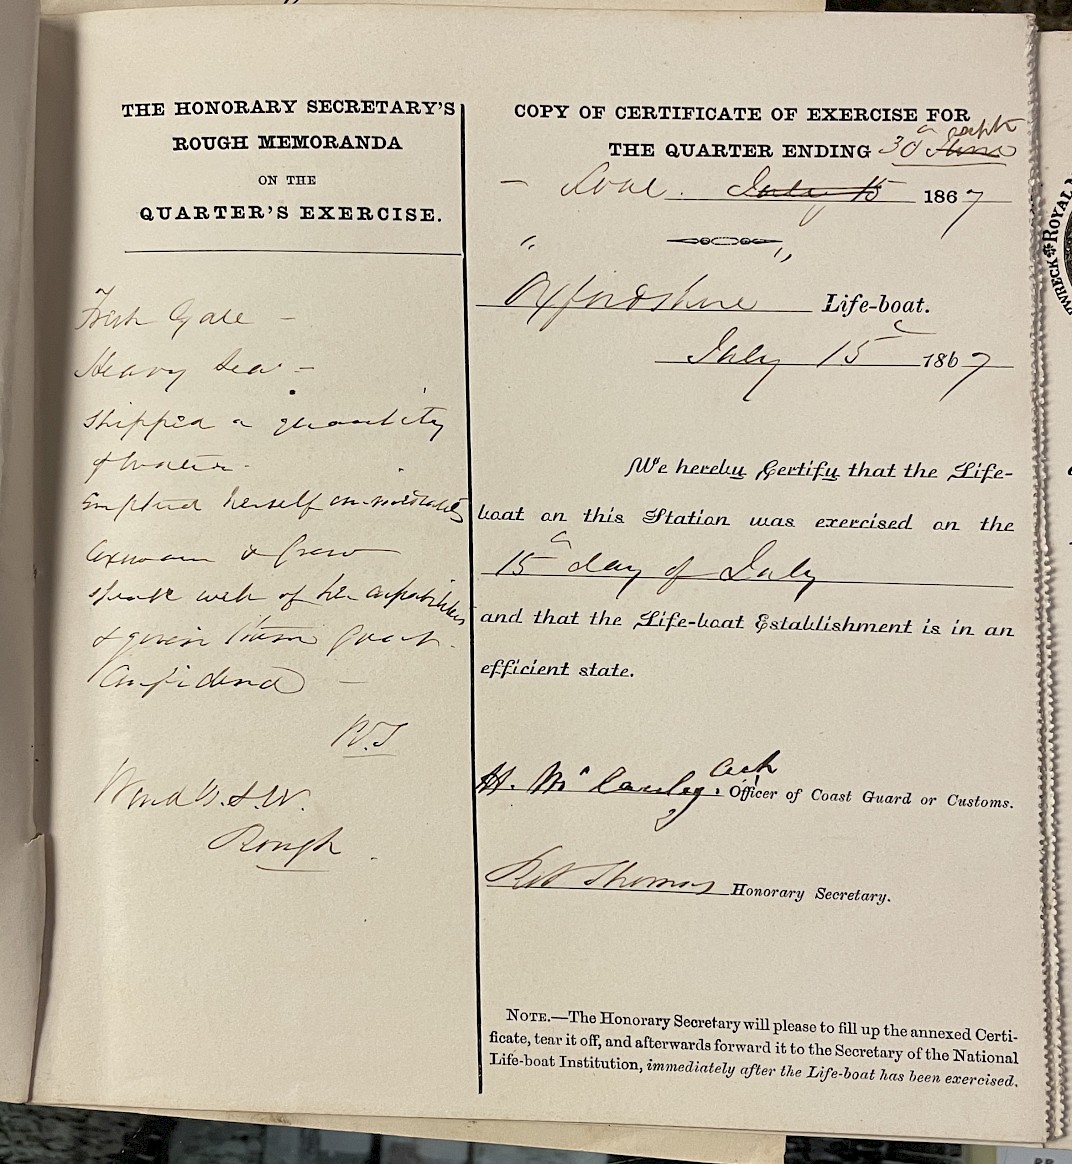 THE HONORARY SECRETARY'S
ROUGH MEMORANDA
ON THE
QUARTER'S EXERCISE.
Fresh Gale –
Heavy Sea –
shipped a quantity
of water.
Emptied herself immediately
Coxswain & Crew
speak well of her capabilities
& given them great
Confidence –
R.T
Wind W.S.W.
Rough.
COPY OF CERTIFICATE OF EXERCISE FOR
THE QUARTER ENDING 30 June Sept
July 15 1867
"Oxfordshire" Life-boat.
July 15 1867
We hereby Certify that the Life-
boat on this Station was exercised on the
15 day of July
and that the Life-boat Establishment is in an
efficient state.
H. Mc Officer of Coast Guard or Customs.
Robt Thomas Honorary Secretary.
NOTE.—The Honorary Secretary will please to fill up the annexed Certi-
ficate, tear it off, and afterwards forward it to the Secretary of the National
Life-boat Institution, immediately after the Life-boat has been exercised.
WRECK ROYAL